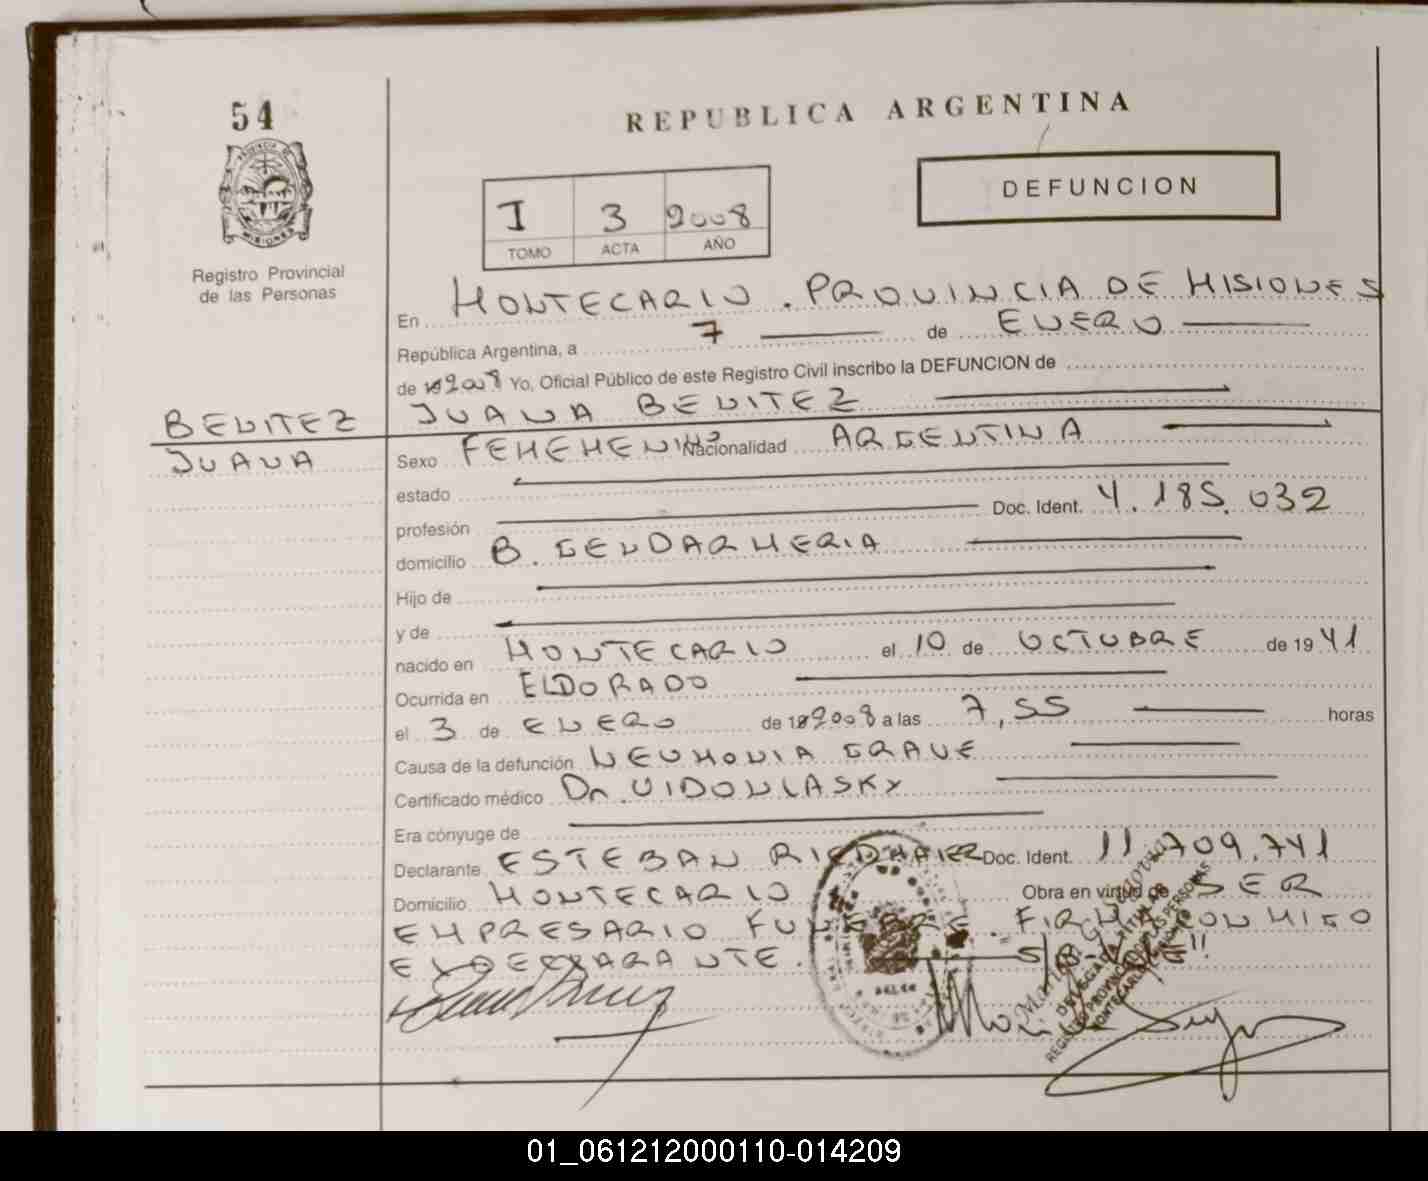 54
REPUBLICA ARGENTINA
PROVINCIA DE
MISIONES
Registro Provincial
de las Personas
I 3 2008
TOMO ACTA AÑO
DEFUNCION
En MONTECARLO . PROVINCIA DE MISIONES
República Argentina, a 7 de ENERO
de 192008 Yo, Oficial Público de este Registro Civil inscribo la DEFUNCION de
BENITEZ JUANA BENITEZ
JUANA
Sexo FEMEMENINO Nacionalidad ARGENTINA
estado
profesión Doc. Ident. 4.185.032
domicilio B. GENDARMERIA
Hijo de
y de
nacido en MONTECARLO el 10 de OCTUBRE de 19 41
Ocurrida en ELDORADO
el 3 de ENERO de 192008 a las 7,55 horas
Causa de la defunción NEUMONIA GRAVE
Certificado médico Dr. VIDONLASKY
Era cónyuge de
Declarante ESTEBAN RIEDMAIER Doc. Ident. 11.709.741
Domicilio MONTECARLO Obra en virtud de SER
EMPRESARIO FUNEBRE. FIRMA CONMIGO
EL DECLARANTE.
DELEGADA TITULAR
REGISTRO PROVINCIAL DE LAS PERSONAS
01_061212000110-014209